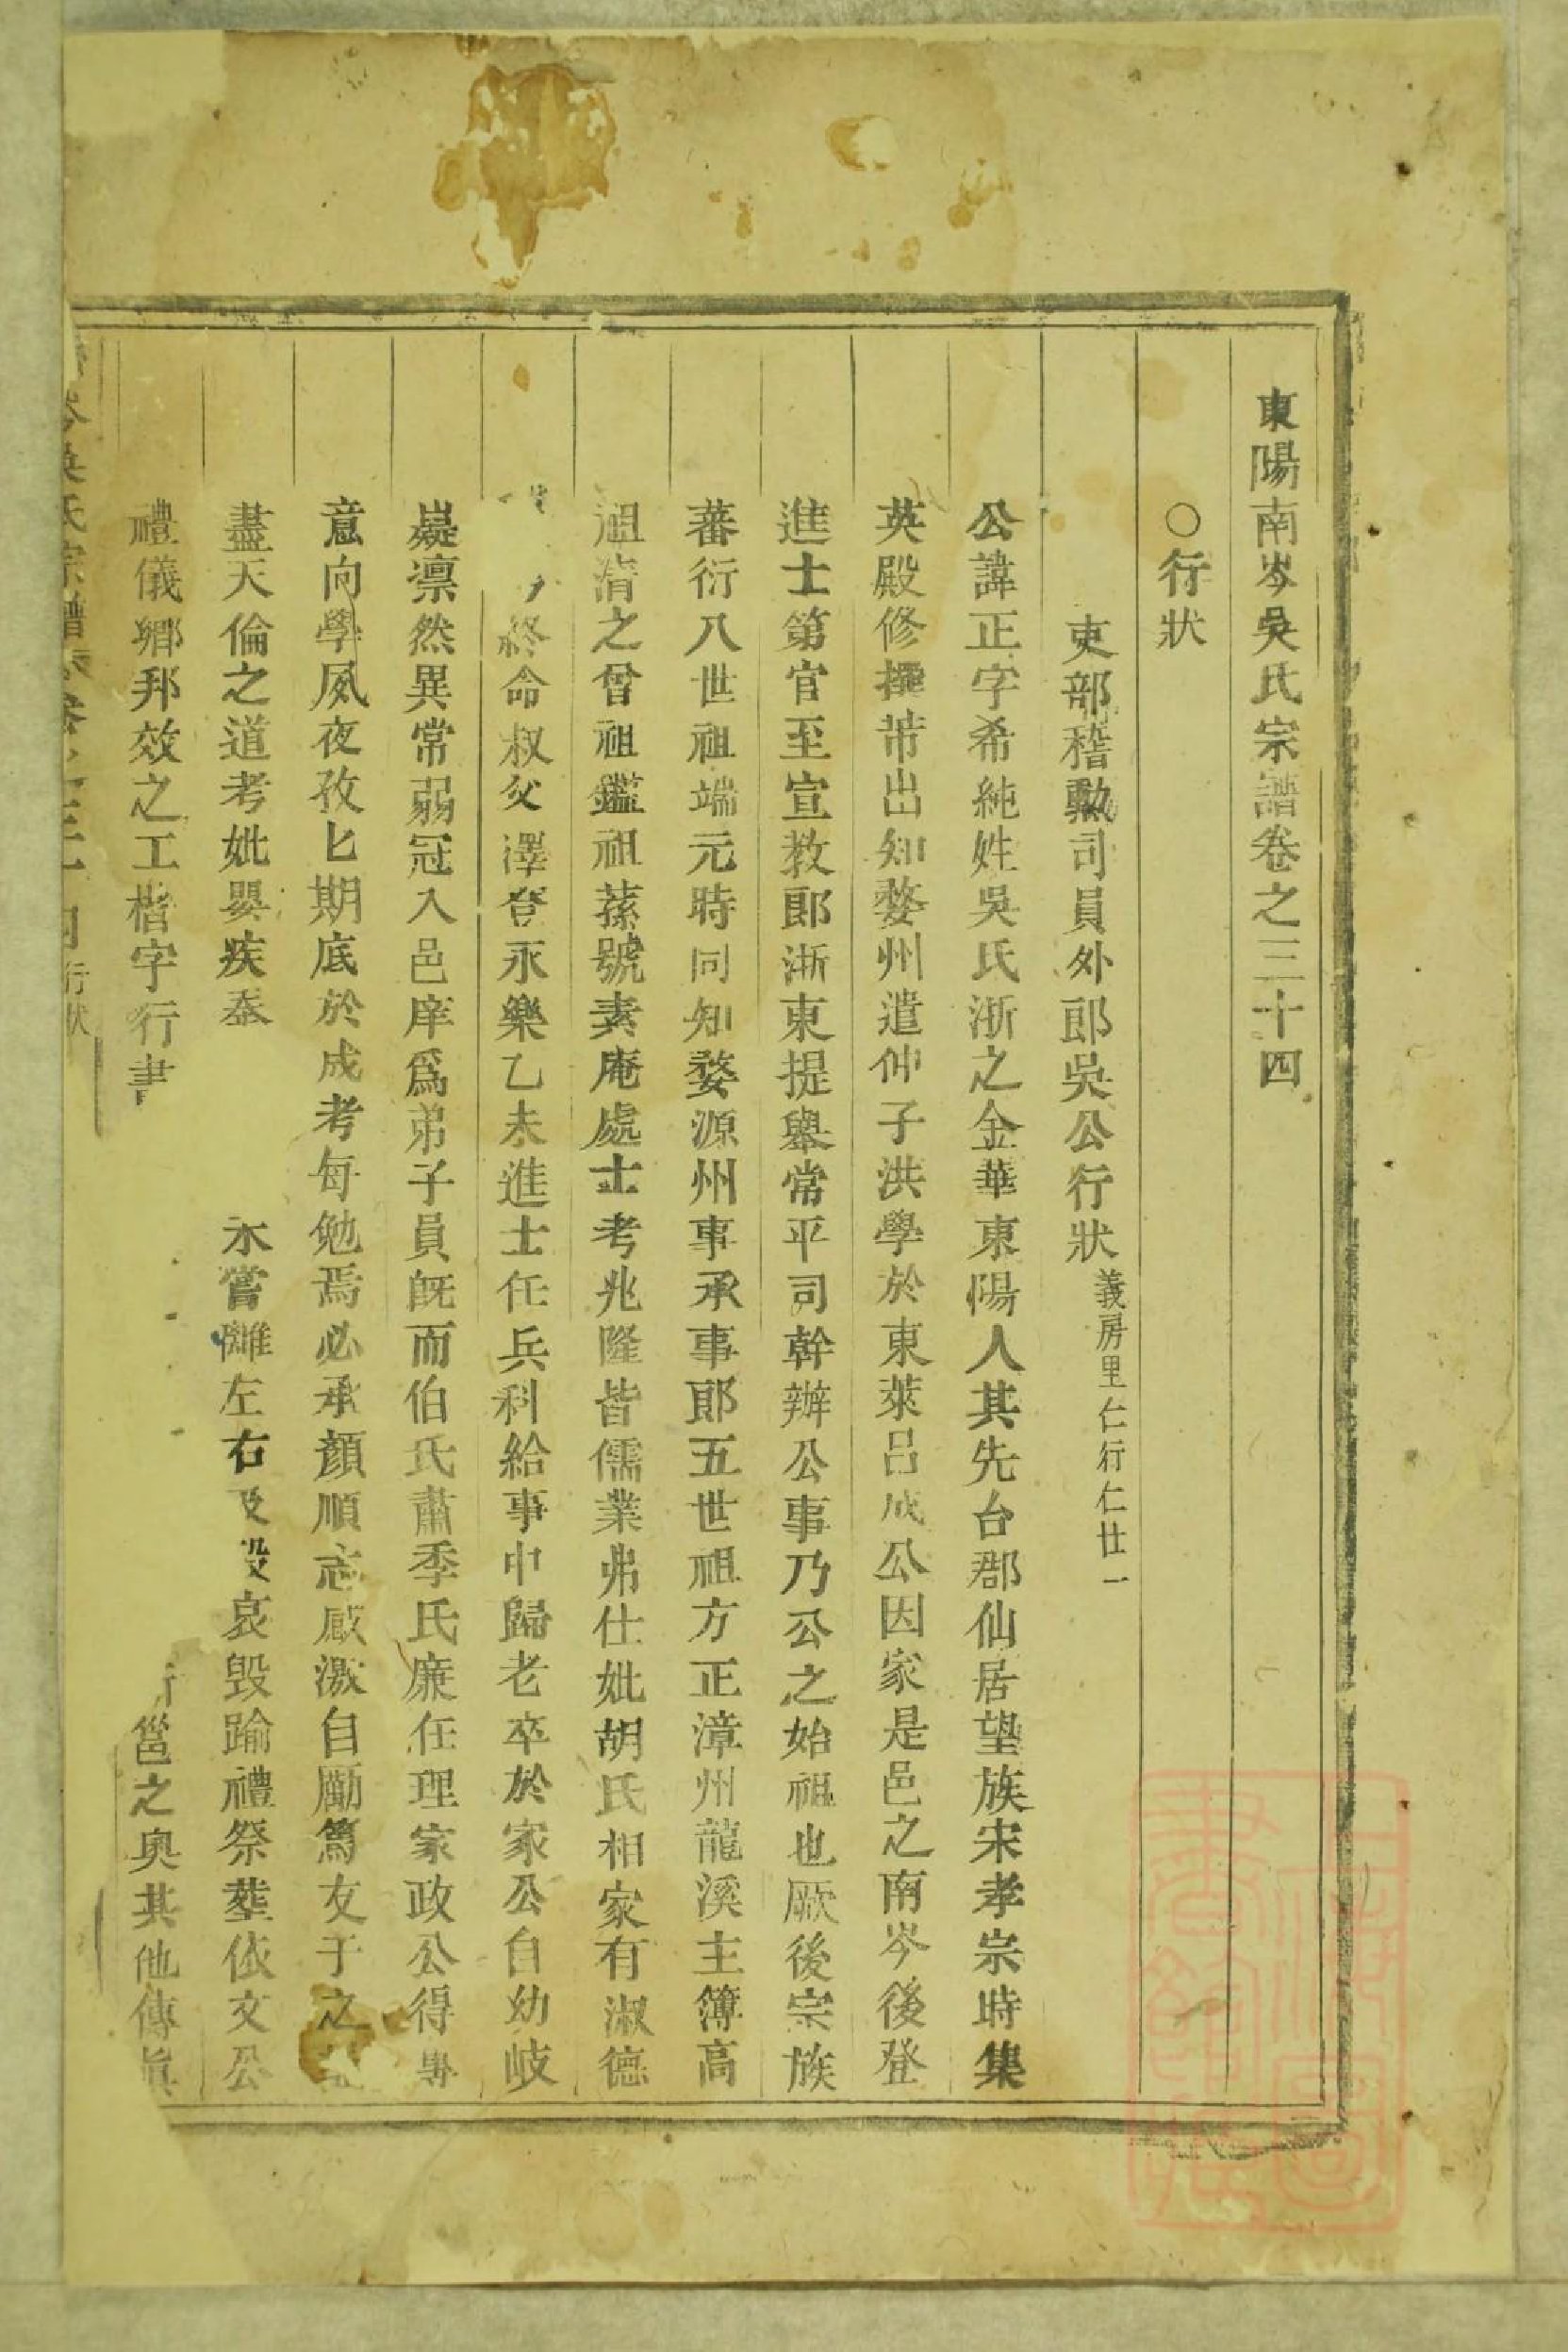 東陽南岑吳氏宗譜卷之三十四
○行狀
吏部稽勳司員外郎吳公行狀 義房里仁行仁廿一
公諱正字希純姓吳氏浙之金華東陽人其先台郡仙居望族宋孝宗時集
英殿修撰芾出知婺州遣仲子洪學於東萊呂成公因家是邑之南岑後登
進士第官至宣教郎浙東提舉常平司幹辦公事乃公之始祖也厥後宗族
蕃衍八世祖端元時同知婺源州事承事郎五世祖方正漳州龍溪主簿高
祖清之曾祖鑑祖蓀號素庵處士考兆隆皆儒業弗仕妣胡氏相家有淑德
終命叔父澤登永樂乙未進士任兵科給事中歸老卒於家公自幼岐
嶷凛然異常弱冠入邑庠爲弟子員旣而伯氏肅季氏廉任理家政公得專
意向學夙夜孜匕期底於成考每勉焉必承顏順志感激自勵篤友于之
盡天倫之道考妣嬰疾忝 未嘗離左右及殁哀毁踰禮祭塟依文公
禮儀鄉邦效之工楷字行書 邕之奥其他傳眞
岑吳氏宗譜 卷之三十四 行狀